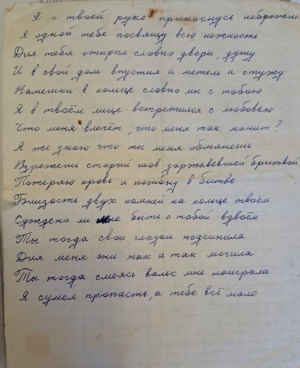 Я к твоей руке прикоснусь небрежно
Я одной тебе посвящу всю нежность
Для тебя открыл словно двери душу
И в свой дом впустил и метель и стужу
Камешки в кольце словно мы с тобою
Я в твоём лице встретился с любовью
Что меня влечёт, что меня так манит?
Я же знаю что ты меня обманешь
Взрежешь старый шов заржавевшей бритвой
Потеряю кровь и погибну в битве
Близость двух камней на кольце твоём
Суждено ли мне быть с тобой вдвоём
Ты тогда свои глазки подсинила
Для меня они так и так могила
Ты тогда смеясь вальс мне наиграла
Я сумел пропасть, а тебе всё мало